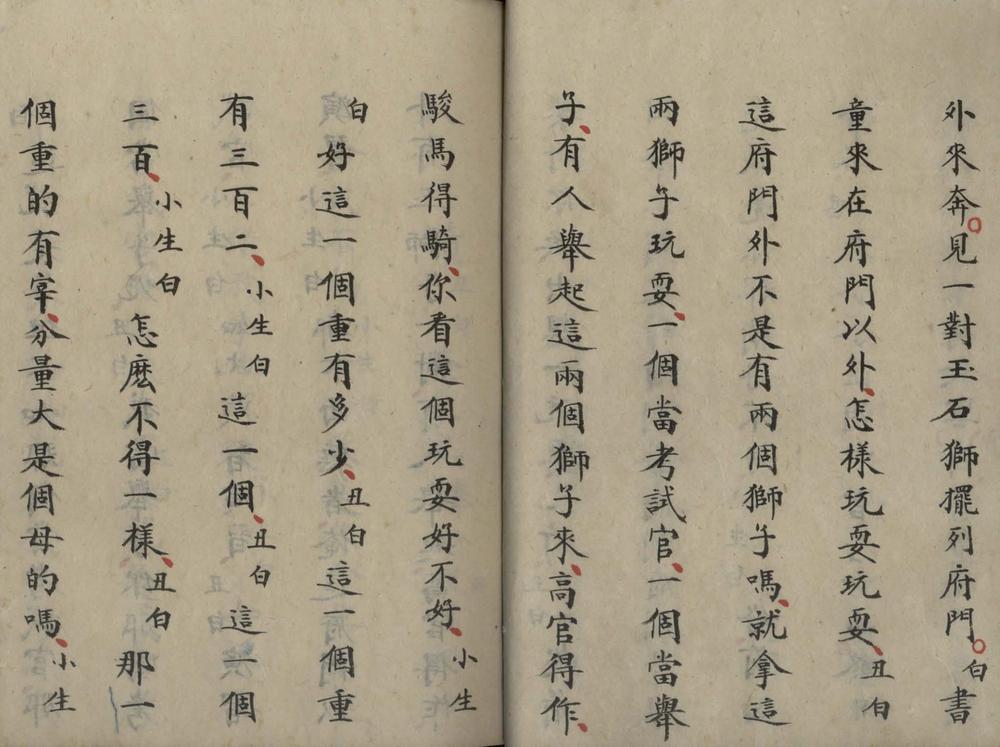 外來奔。見一對玉石獅擺列府門。白書
童來在府門以外、怎樣玩耍玩耍、丑白
這府門外不是有兩個獅子嗎、就拿這
兩獅子玩耍、一個當考試官、一個當舉
子、有人舉起這兩個獅子來、高官得作、
駿馬得騎、你看這個玩耍好不好、小生
白好這一個重有多少、丑白這一個重
有三百二、小生白這一個、丑白這一個
三百、小生白怎麼不得一樣、丑白那一
個重的有宰、分量大是個母的嗎、小生